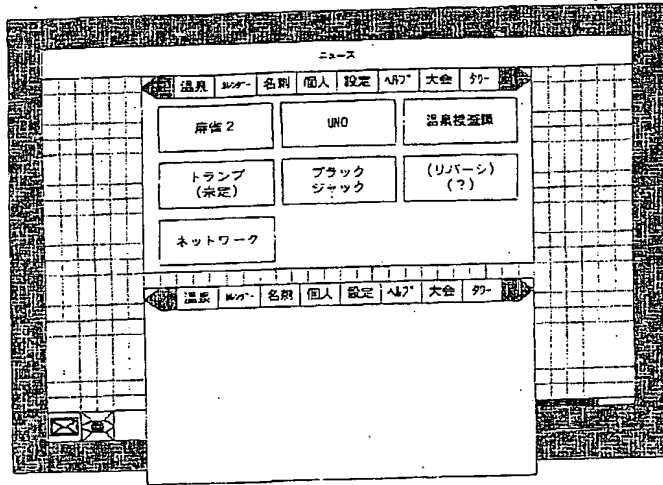 ニュース
温泉 ｶﾚﾝﾀﾞｰ 名刺 個人 設定 ﾍﾙﾌﾟ 大会 ﾀﾜｰ
麻雀2 UNO 温泉捜査鎮
トランプ ブラック (リバーシ)
(未定) ジャック (?)
ネットワーク
温泉 ｶﾚﾝﾀﾞｰ 名刺 個人 設定 ﾍﾙﾌﾟ 大会 ﾀﾜｰ